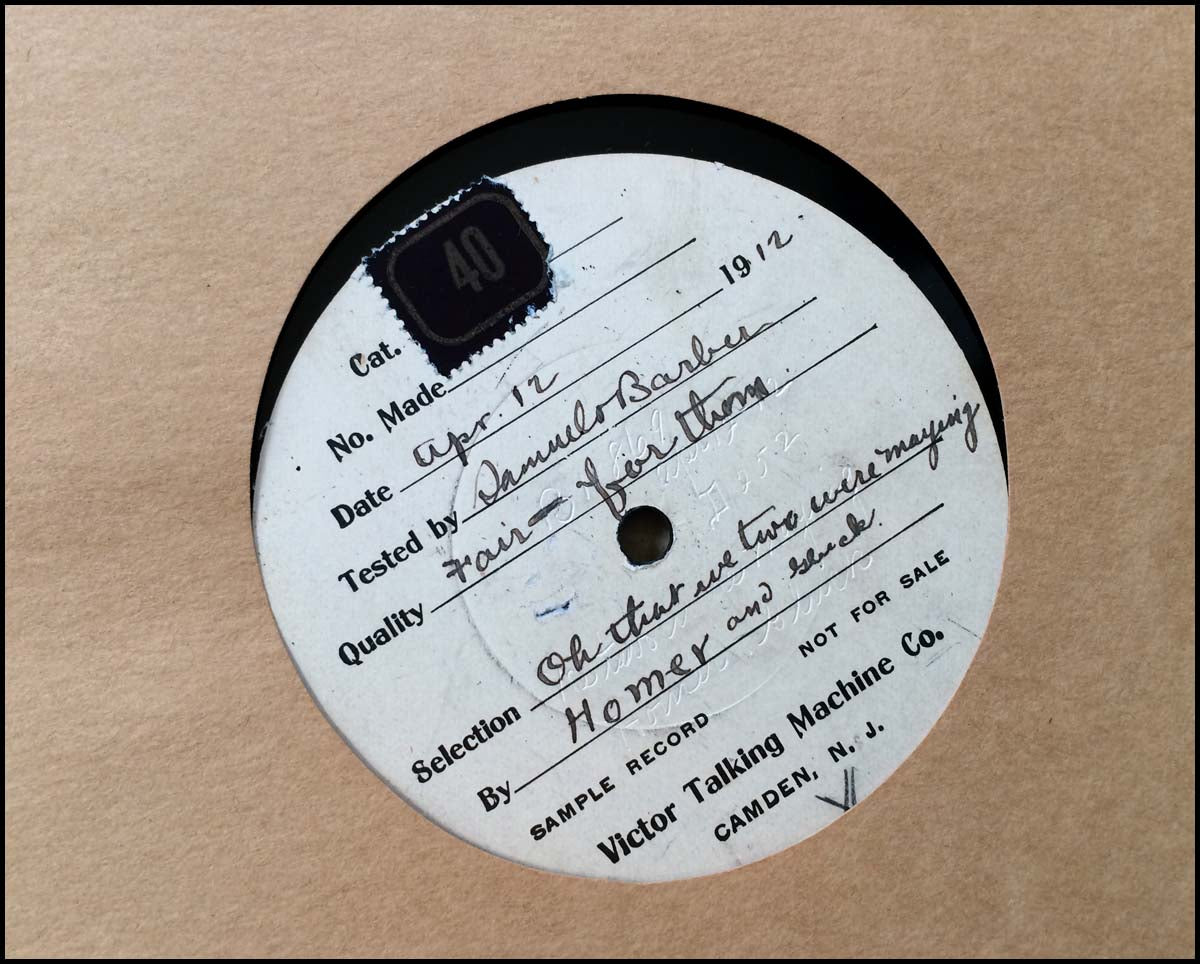 40
Cat.
No. Made
Date apr. 12 1912
Tested by Samuel Barber
Quality Fair — for them.
Selection Oh that we two were maying
By Homer and Gluck.
SAMPLE RECORD NOT FOR SALE
Victor Talking Machine Co.
CAMDEN, N. J.